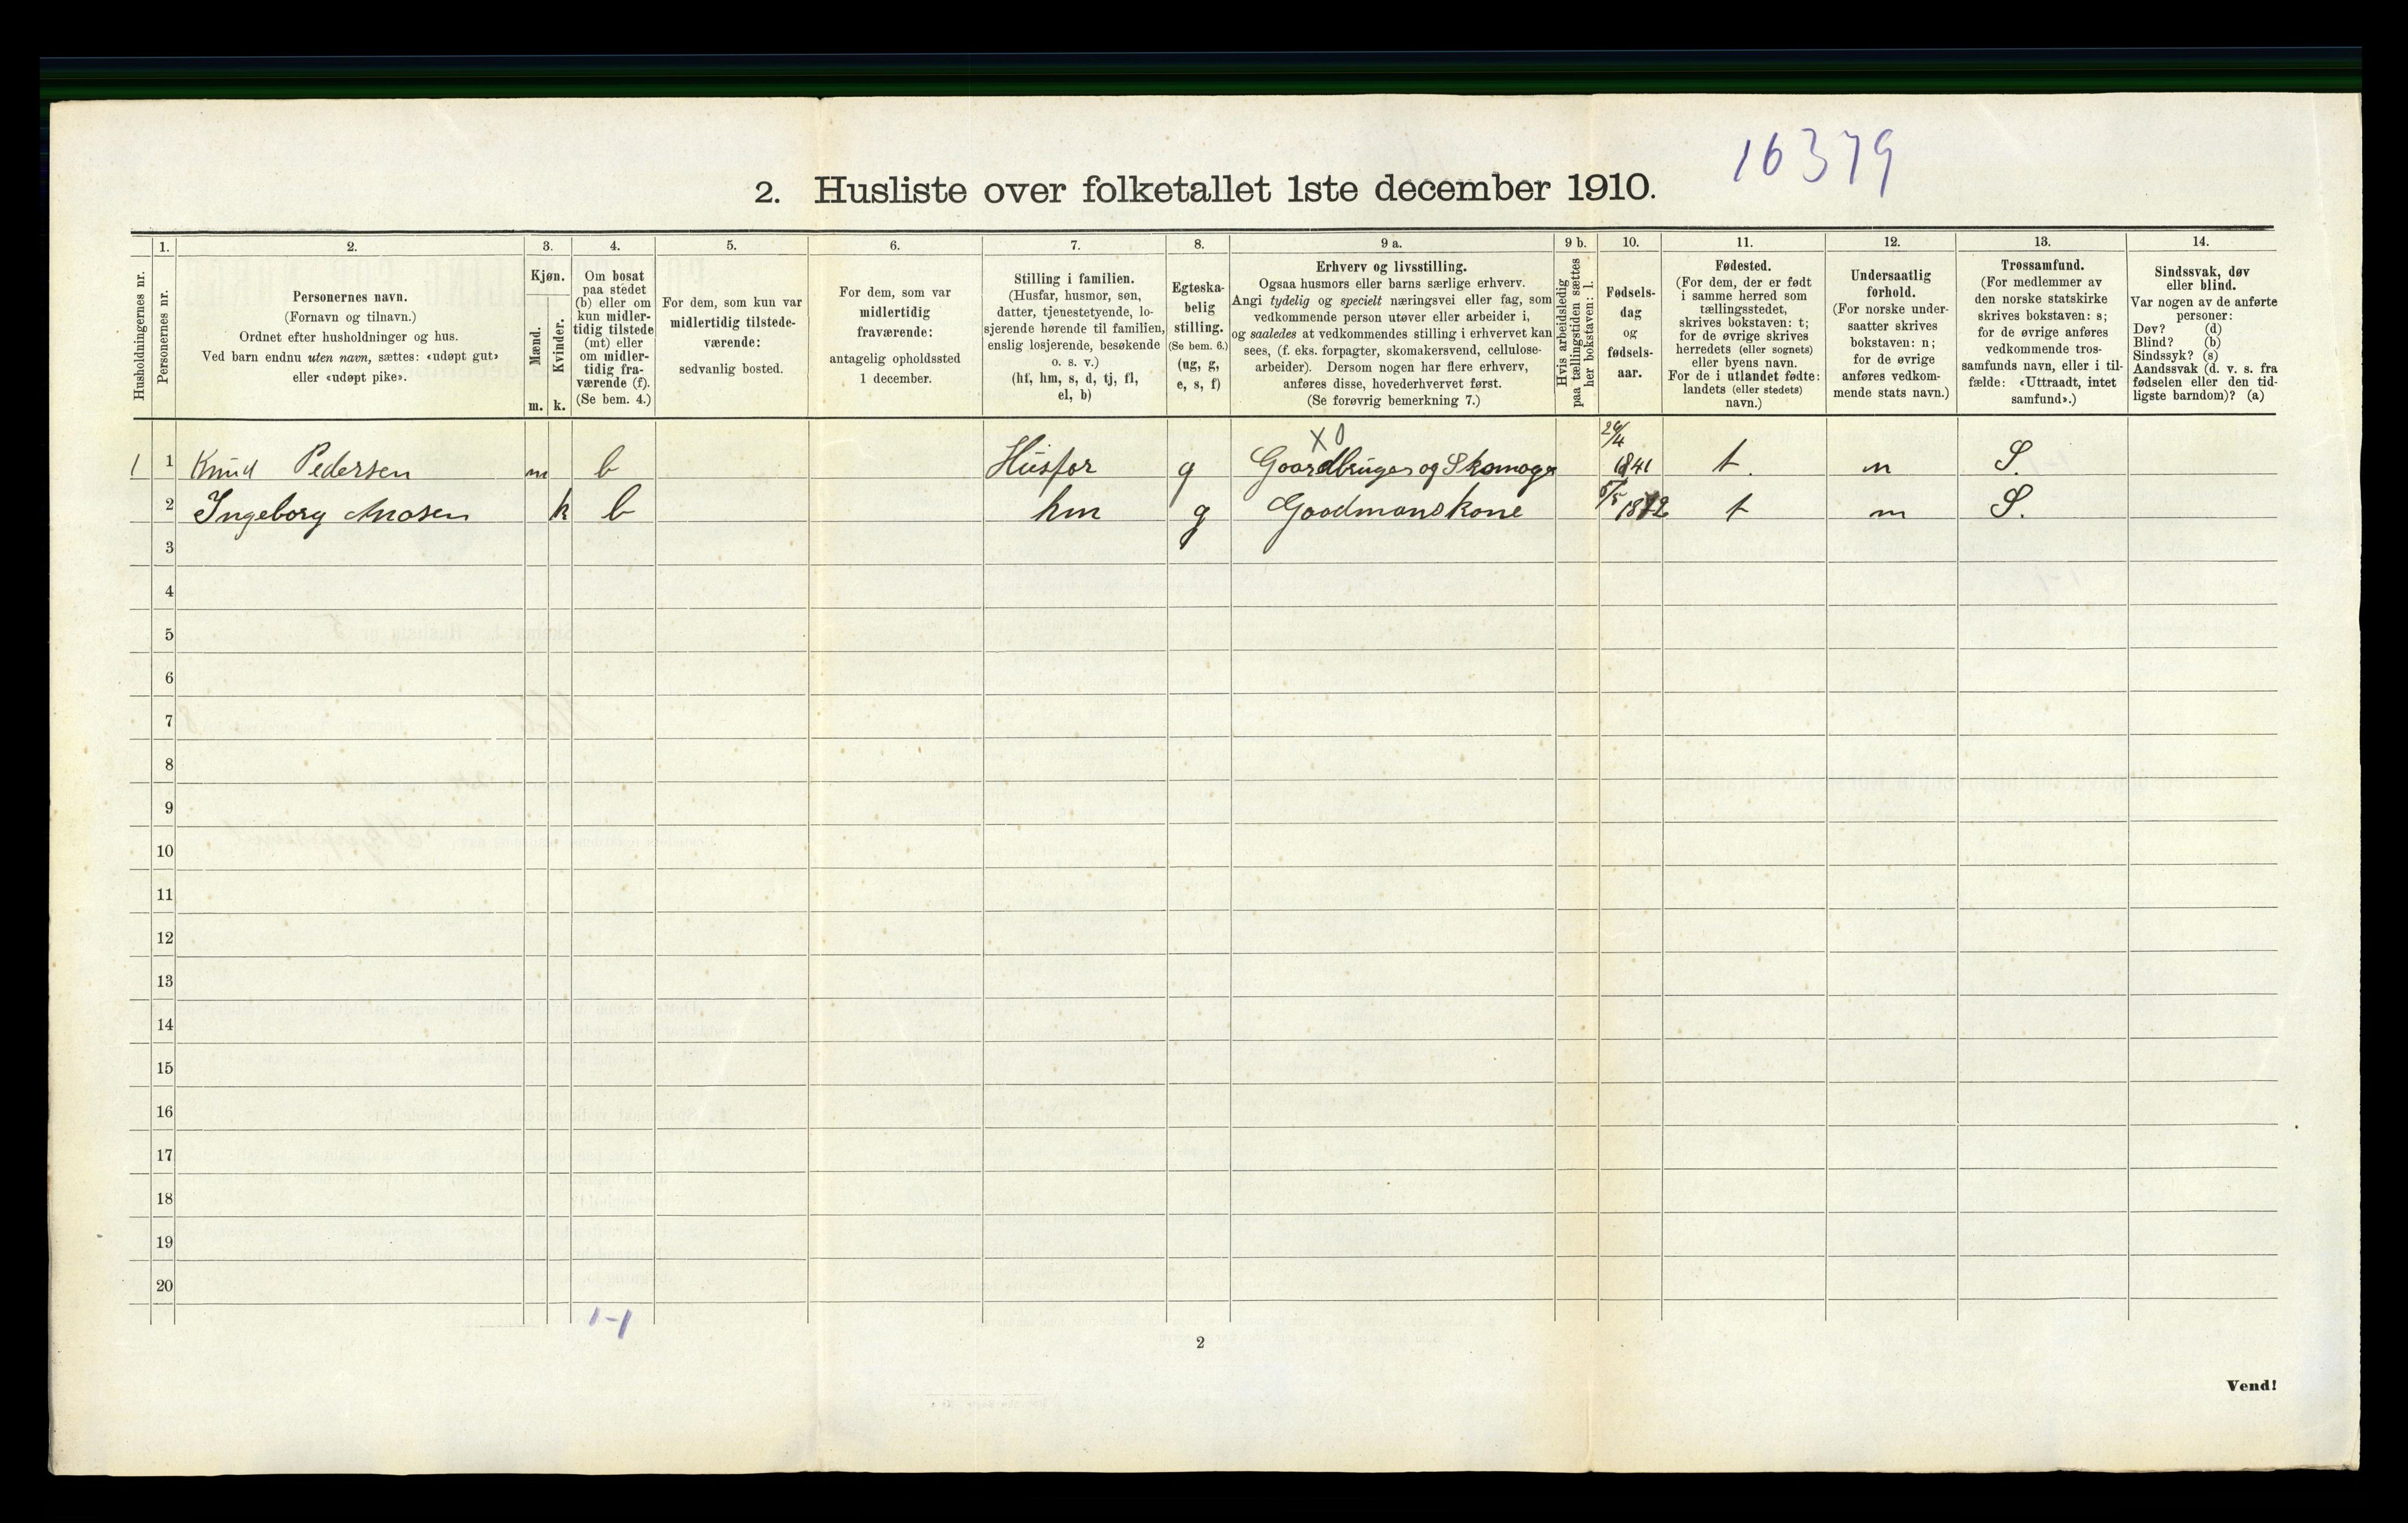 16379
2. Husliste over folketallet 1ste december 1910.
Husholdningernes nr.
1.
Personernes nr.
2.
Personernes navn.
(Fornavn og tilnavn.)
Ordnet efter husholdninger og hus.
Ved barn endnu uten navn, sættes: «udøpt gut»
eller «udøpt pike».
3.
Kjøn.
Mænd.
Kvinder.
m. k.
4.
Om bosat
paa stedet
(b) eller om
kun midler-
tidig tilstede
(mt) eller
om midler-
tidig fra-
værende (f).
(Se bem. 4.)
5.
For dem, som kun var
midlertidig tilstede-
værende:
sedvanlig bosted.
6.
For dem, som var
midlertidig
fraværende:
antagelig opholdssted
1 december.
7.
Stilling i familien.
(Husfar, husmor, søn,
datter, tjenestetyende, lo-
sjerende hørende til familien,
enslig losjerende, besøkende
o. s. v.)
(hf, hm, s, d, tj, fl,
el, b)
8.
Egteska-
belig
stilling.
(Se bem. 6.)
(ug, g,
e, s, f)
9 a.
Erhverv og livsstilling.
Ogsaa husmors eller barns særlige erhverv.
Angi tydelig og specielt næringsvei eller fag, som
vedkommende person utøver eller arbeider i,
og saaledes at vedkommendes stilling i erhvervet kan
sees, (f. eks. forpagter, skomakersvend, cellulose-
arbeider). Dersom nogen har flere erhverv,
anføres disse, hovederhvervet først.
(Se forøvrig bemerkning 7.)
9 b.
Hvis arbeidsledig
paa tællingstiden sættes
her bokstaven: l.
10.
Fødsels-
dag
og
fødsels-
aar.
11.
Fødested.
(For dem, der er født
i samme herred som
tællingsstedet,
skrives bokstaven: t;
for de øvrige skrives
herredets (eller sognets)
eller byens navn.
For de i utlandet fødte:
landets (eller stedets)
navn.)
12.
Undersaatlig
forhold.
(For norske under-
saatter skrives
bokstaven: n;
for de øvrige
anføres vedkom-
mende stats navn.)
13.
Trossamfund.
(For medlemmer av
den norske statskirke
skrives bokstaven: s;
for de øvrige anføres
vedkommende tros-
samfunds navn, eller i til-
fælde: «Uttraadt, intet
samfund».)
14.
Sindssvak, døv
eller blind.
Var nogen av de anførte
personer:
Døv? (d)
Blind? (b)
Sindssyk? (s)
Aandssvak (d. v. s. fra
fødselen eller den tid-
ligste barndom)? (a)
X 0
1 1 Knud Pedersen m b Husfar g Gaardbruger og Skomager 1841 t. n S.
2 Ingeborg k b hm g Gaadmandskone 5/5 t n S.
3
4
5
6
7
8
9
10
11
12
13
14
15
16
17
18
19
20
1-1
2
Vend!